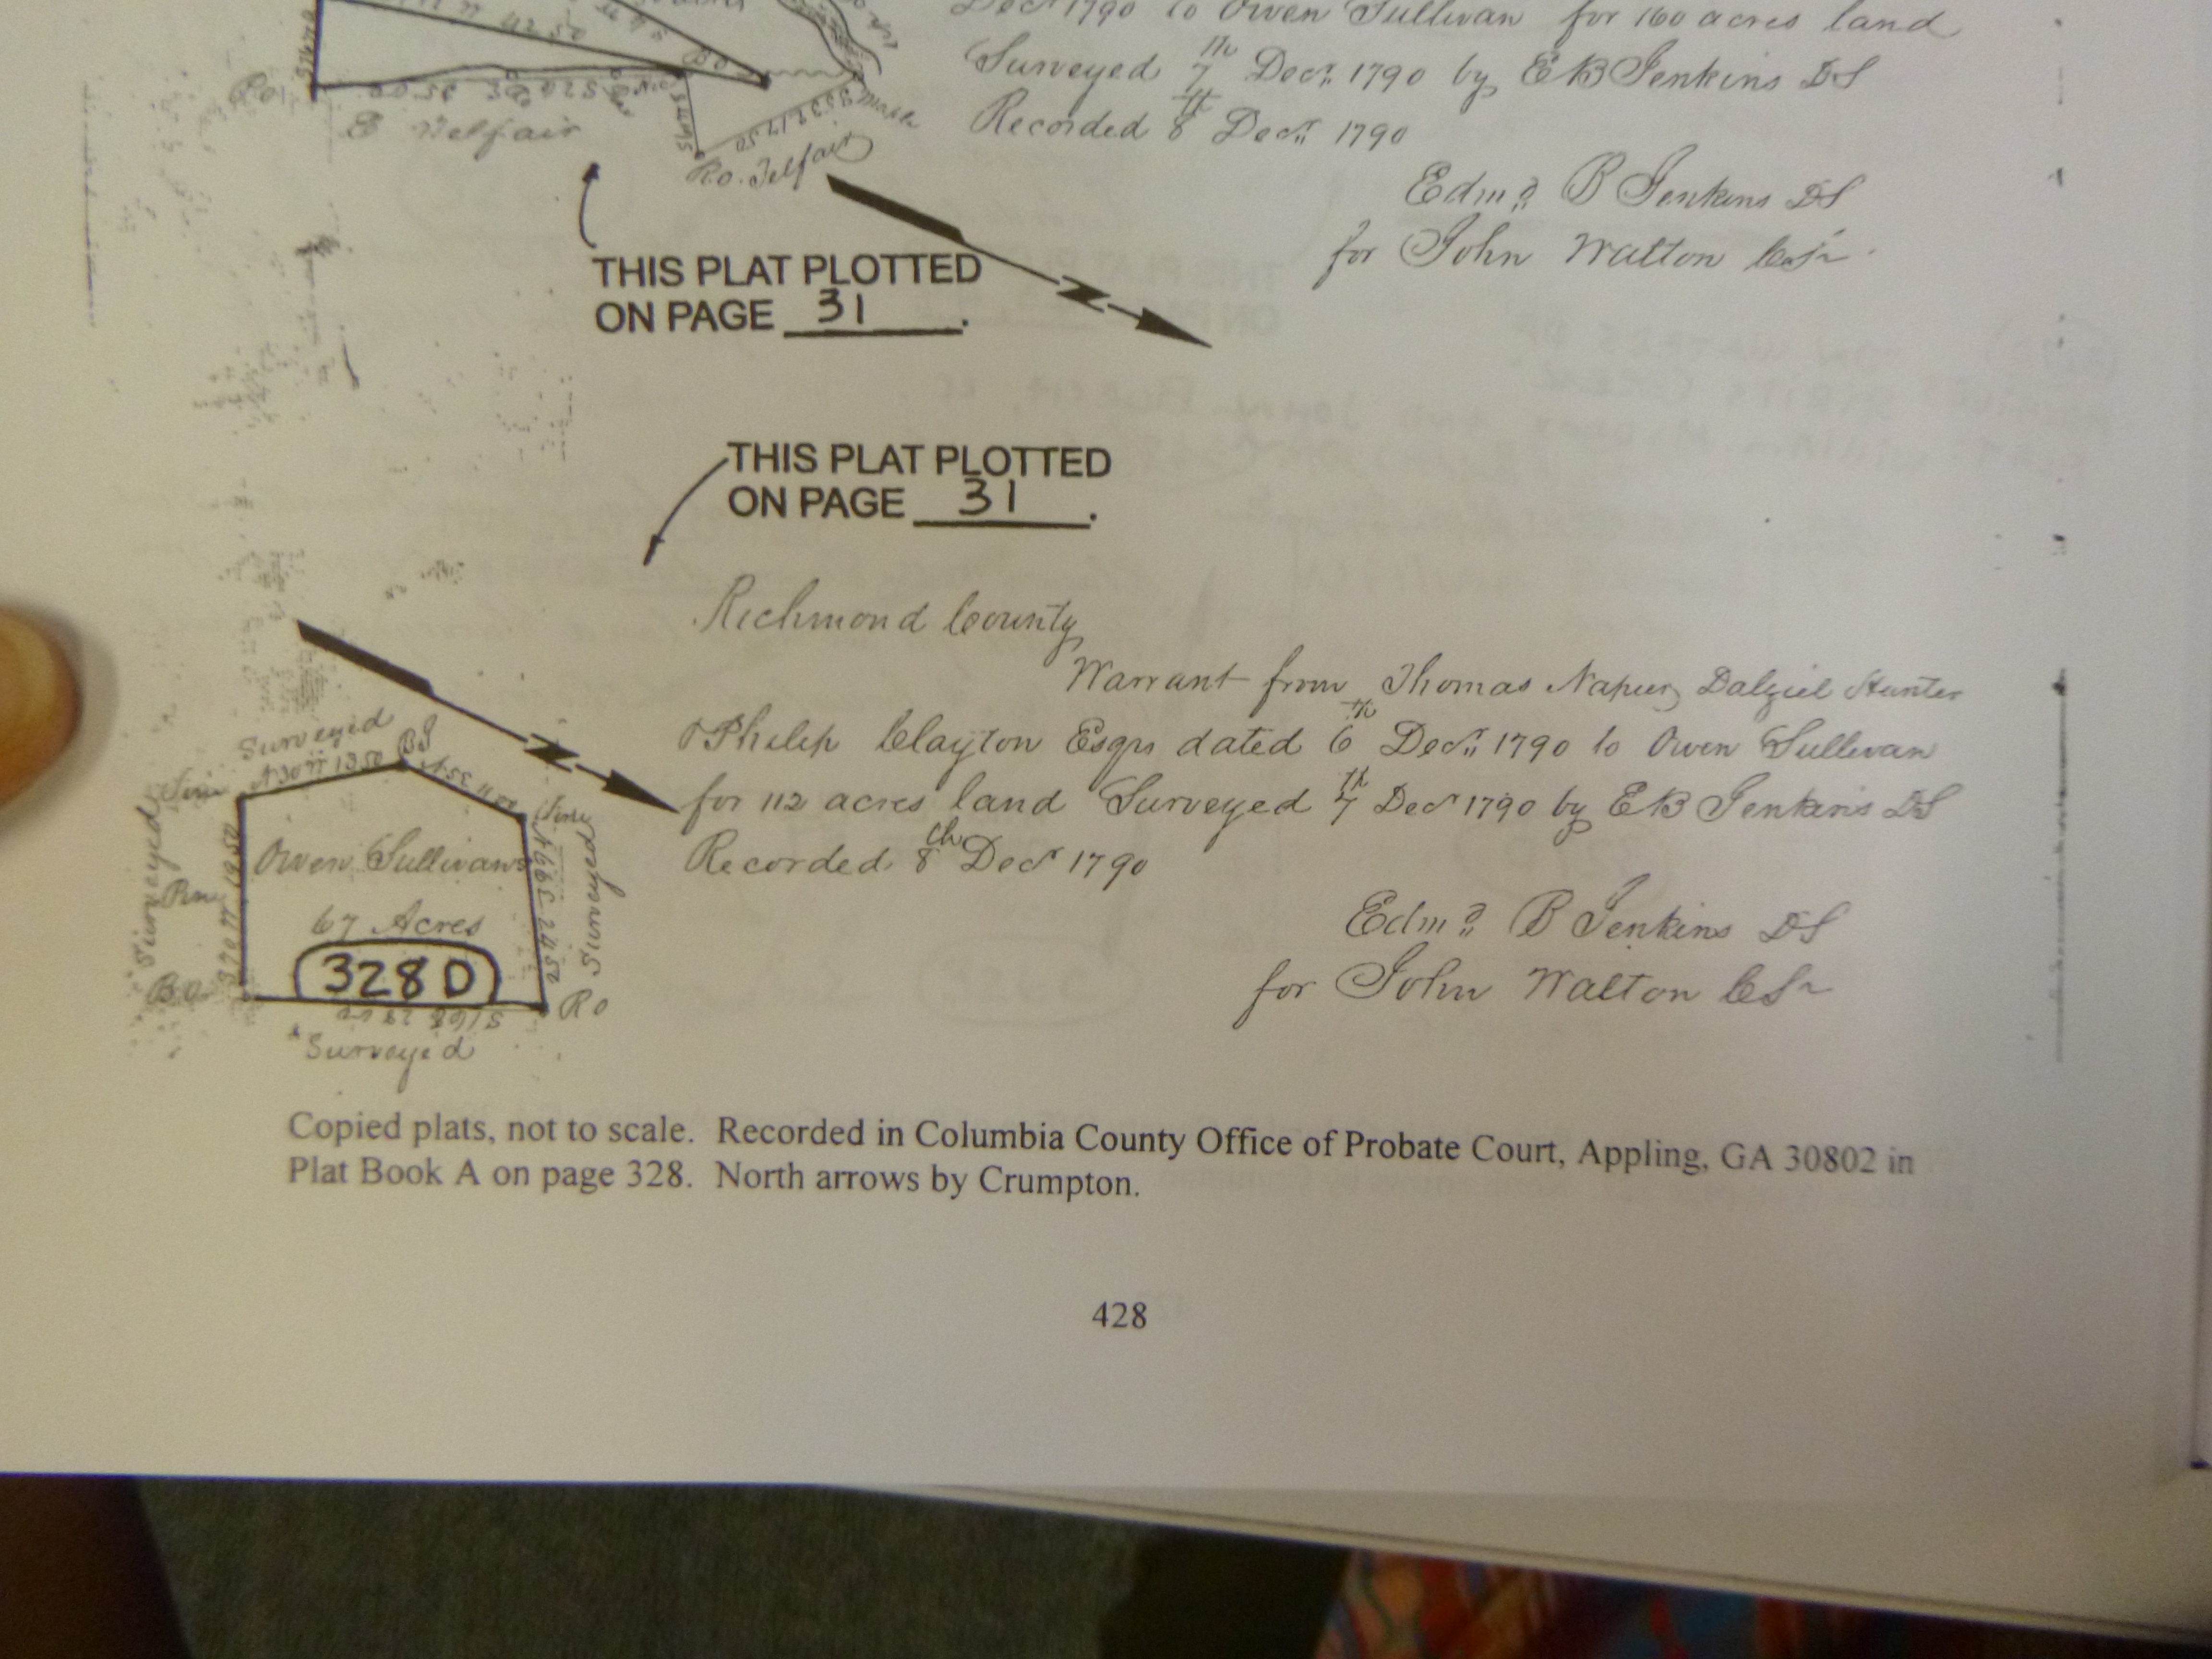 Decr 1790 to Owen Sullivan for 160 acres land
Surveyed 7th Decr. 1790 by E B Jenkins DS
Recorded 8th Decr. 1790
Edmd. B Jenkins DS
for John Walton CSr
E Telfair
Ro. Telfair
Maple
THIS PLAT PLOTTED
ON PAGE 31.
THIS PLAT PLOTTED
ON PAGE 31.
Richmond County
Warrant from Thomas Napier, Dalziel Hunter
Philip Clayton Esqrs dated 6th Decr. 1790 to Owen Sullivan
for 112 acres land Surveyed 7th Decr 1790 by E B Jenkins DS
Recorded 8th Decr 1790
Edmd. B Jenkins DS
for John Walton CSr
Surveyed
Surveyed
Owen Sullivans
67 Acres
328 D
Surveyed
RO
Surveyed
Copied plats, not to scale. Recorded in Columbia County Office of Probate Court, Appling, GA 30802 in
Plat Book A on page 328. North arrows by Crumpton.
428